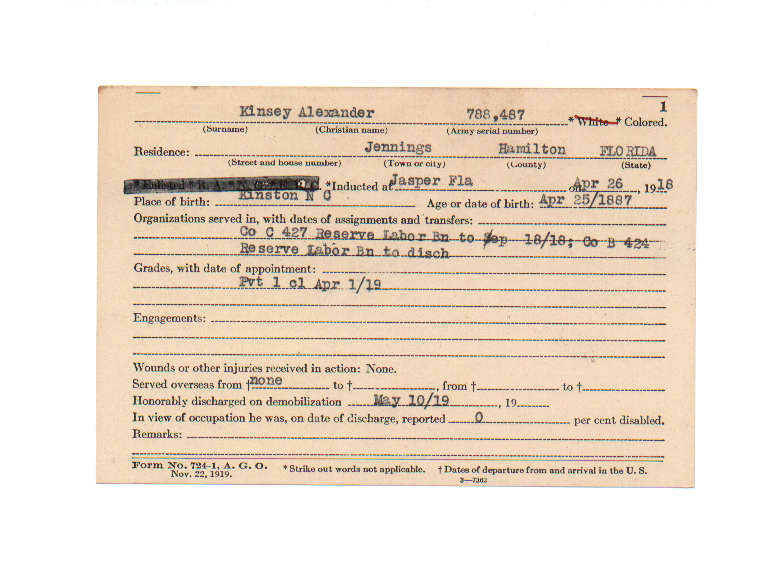 1
Kinsey Alexander 788,487 * White * Colored.
(Surname) (Christian name) (Army serial number)
Residence: Jennings Hamilton FLORIDA
(Street and house number) (Town or city) (County) (State)
*Inducted at Jasper Fla on Apr 26, 1918
Place of birth: Kinston N C Age or date of birth: Apr 25/1887
Organizations served in, with dates of assignments and transfers:
Co C 427 Reserve Labor Bn to Sep 18/18; Co B 424
Reserve Labor Bn to disch
Grades, with date of appointment:
Pvt 1 cl Apr 1/19
Engagements:
Wounds or other injuries received in action: None.
Served overseas from † none to †, from † to †
Honorably discharged on demobilization May 10/19, 19
In view of occupation he was, on date of discharge, reported 0 per cent disabled.
Remarks:
Form No. 724-1, A. G. O. * Strike out words not applicable. † Dates of departure from and arrival in the U. S.
Nov. 22, 1919. 3—7362